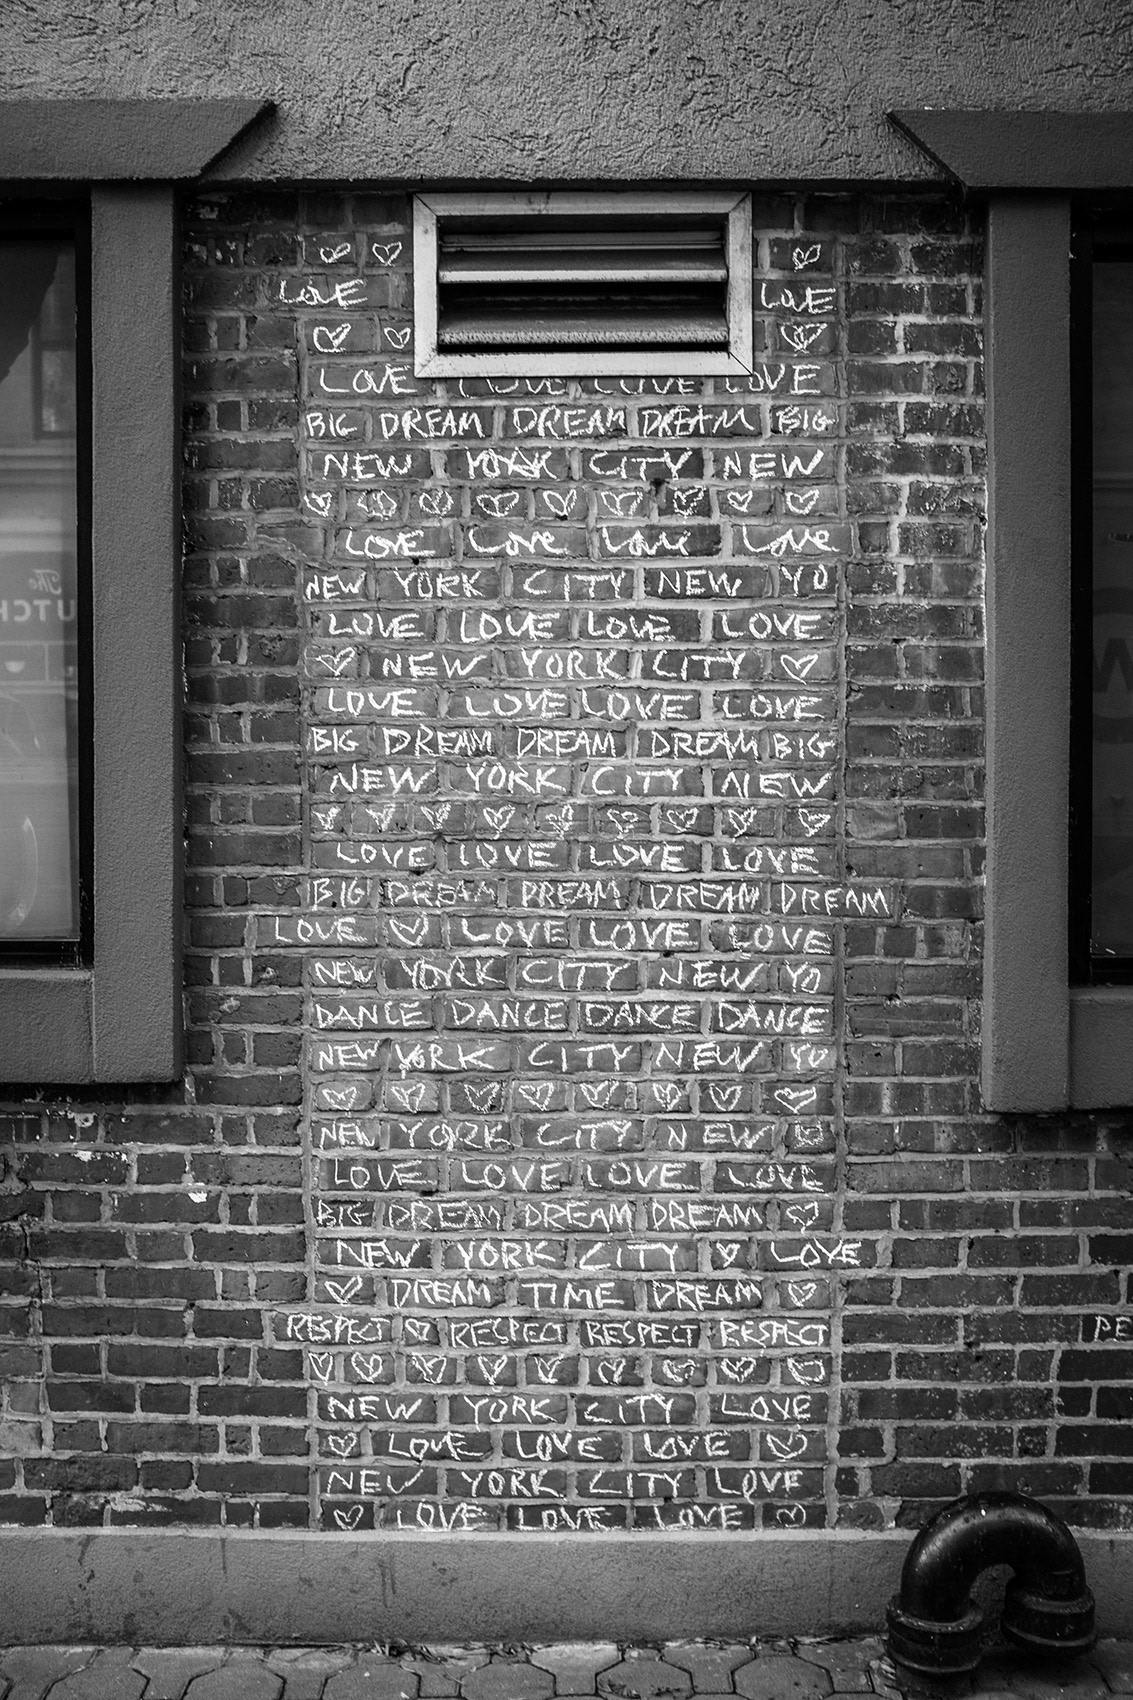 LOVE LOVE
LOVE LOVE LOVE LOVE
BIG DREAM DREAM DREAM BIG
NEW YORK CITY NEW
LOVE Love Love Love
NEW YORK CITY NEW YO
LOVE LOVE LOVE LOVE
NEW YORK CITY
LOVE LOVE LOVE LOVE
BIG DREAM DREAM DREAM BIG
NEW YORK CITY NEW
LOVE LOVE LOVE LOVE
BIG DREAM DREAM DREAM DREAM
LOVE LOVE LOVE LOVE
NEW YORK CITY NEW YO
DANCE DANCE DANCE DANCE
NEW YORK CITY NEW YO
NEW YORK CITY NEW
LOVE LOVE LOVE LOVE
BIG DREAM DREAM DREAM
NEW YORK CITY LOVE
DREAM TIME DREAM
RESPECT RESPECT RESPECT RESPECT
PE
NEW YORK CITY LOVE
LOVE LOVE LOVE
NEW YORK CITY LOVE
LOVE LOVE LOVE
The
UTCH